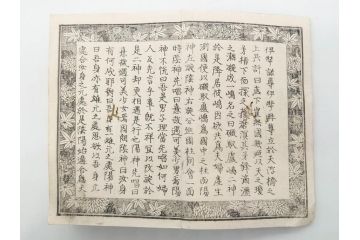 伊弉諾尊伊弉冉尊立於天浮橋之
上共計曰底下豈無國歟廼以天之瓊
矛指下而探之是獲滄溟其矛鋒滴瀝
之潮凝成一嶋名之曰磤馭盧嶋二神
於是降居彼嶋因欲共爲夫婦產生
洲國便以磤馭盧嶋爲國中之柱而陽
神左旋陰神右旋分巡國柱同會一面
時陰神先唱曰憙哉遇可美少男焉陽
神不悅曰吾是男子理當先唱如何婦
人反先言乎事既不祥宜以改旋於
是二神却更相遇是行也陽神先唱曰
憙哉遇可美少女焉因問陰神曰汝身
有何成耶對曰吾身有雌元之處陽神
曰吾身亦有雄元之處思欲以吾身元
處合汝身之元處於是陰陽始遘合爲夫